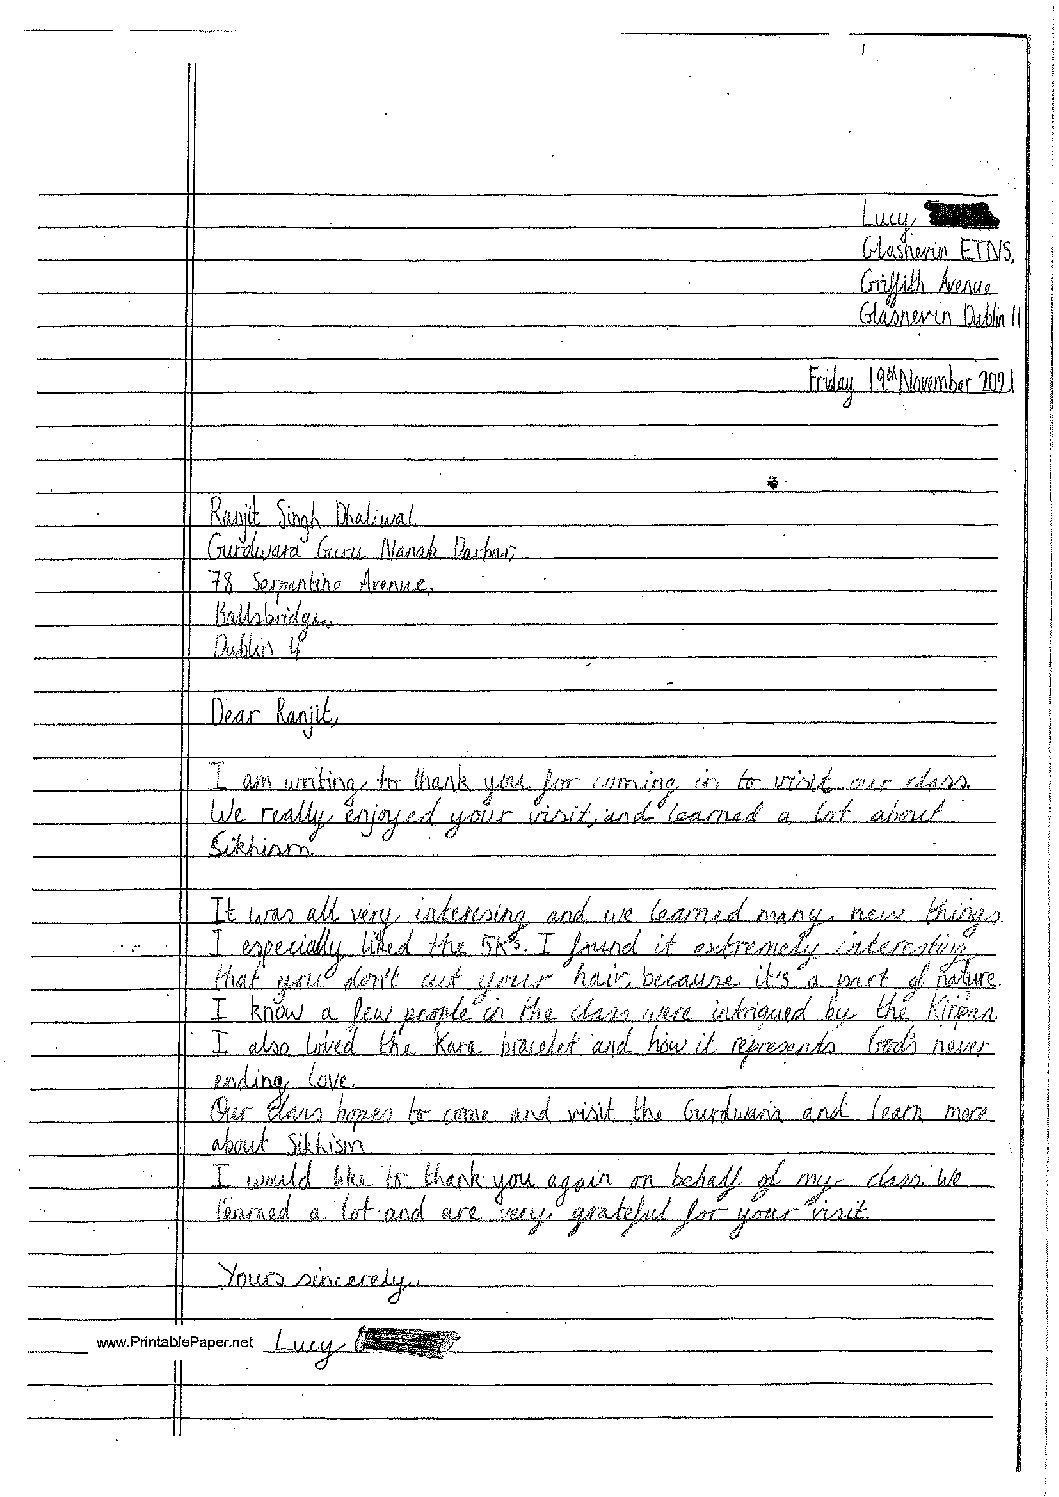 Lucy
Glasnevin ETNS,
Griffith Avenue
Glasnevin Dublin 11
Friday 19th November 2021
Ranjit Singh Dhaliwal
Gurdwara Guru Nanak Darbar,
78 Serpentine Avenue,
Ballsbridge,
Dublin 4
Dear Ranjit,
I am writing to thank you for coming in to visit our class.
We really enjoyed your visit, and learned a lot about
Sikhism
It was all very interesing and we learned many new things
I especially liked the 5Ks. I found it extremely interesting
that you don't cut your hair, because it's a part of nature.
I know a few people in the class were intrigued by the Kirpan
I also loved the Kara bracelet and how it represents God's never
ending love.
Our class hopes to come and visit the Gurdwara and learn more
about Sikhism
I would like to thank you again on behalf of my class. We
learned a lot and are very grateful for your visit
Yours sincerely,
www.PrintablePaper.net Lucy